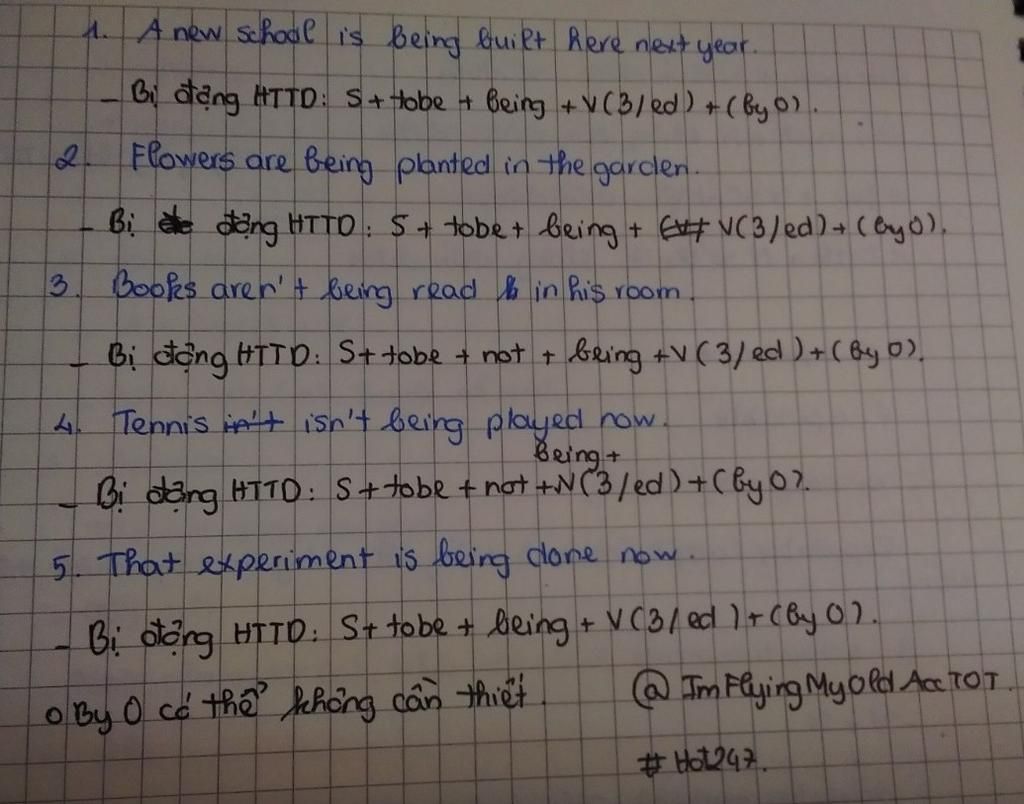 1. A new school is being built here next year.
- Bị động HTTD: S + tobe + being + V(3/ed) + (by O).
2. Flowers are being planted in the garden.
- Bị động HTTD: S + tobe + being + V(3/ed) + (by O).
3. Books aren't being read in his room.
- Bị động HTTD: S + tobe + not + being + V(3/ed) + (By O).
4. Tennis isn't being played now.
Being +
- Bị động HTTD: S + tobe + not + V(3/ed) + (by O).
5. That experiment is being done now.
- Bị động HTTD: S + tobe + being + V(3/ed) + (by O).
o By O có thể không cần thiết. @ImFlyingMyOldAccTOT
#Hot247.